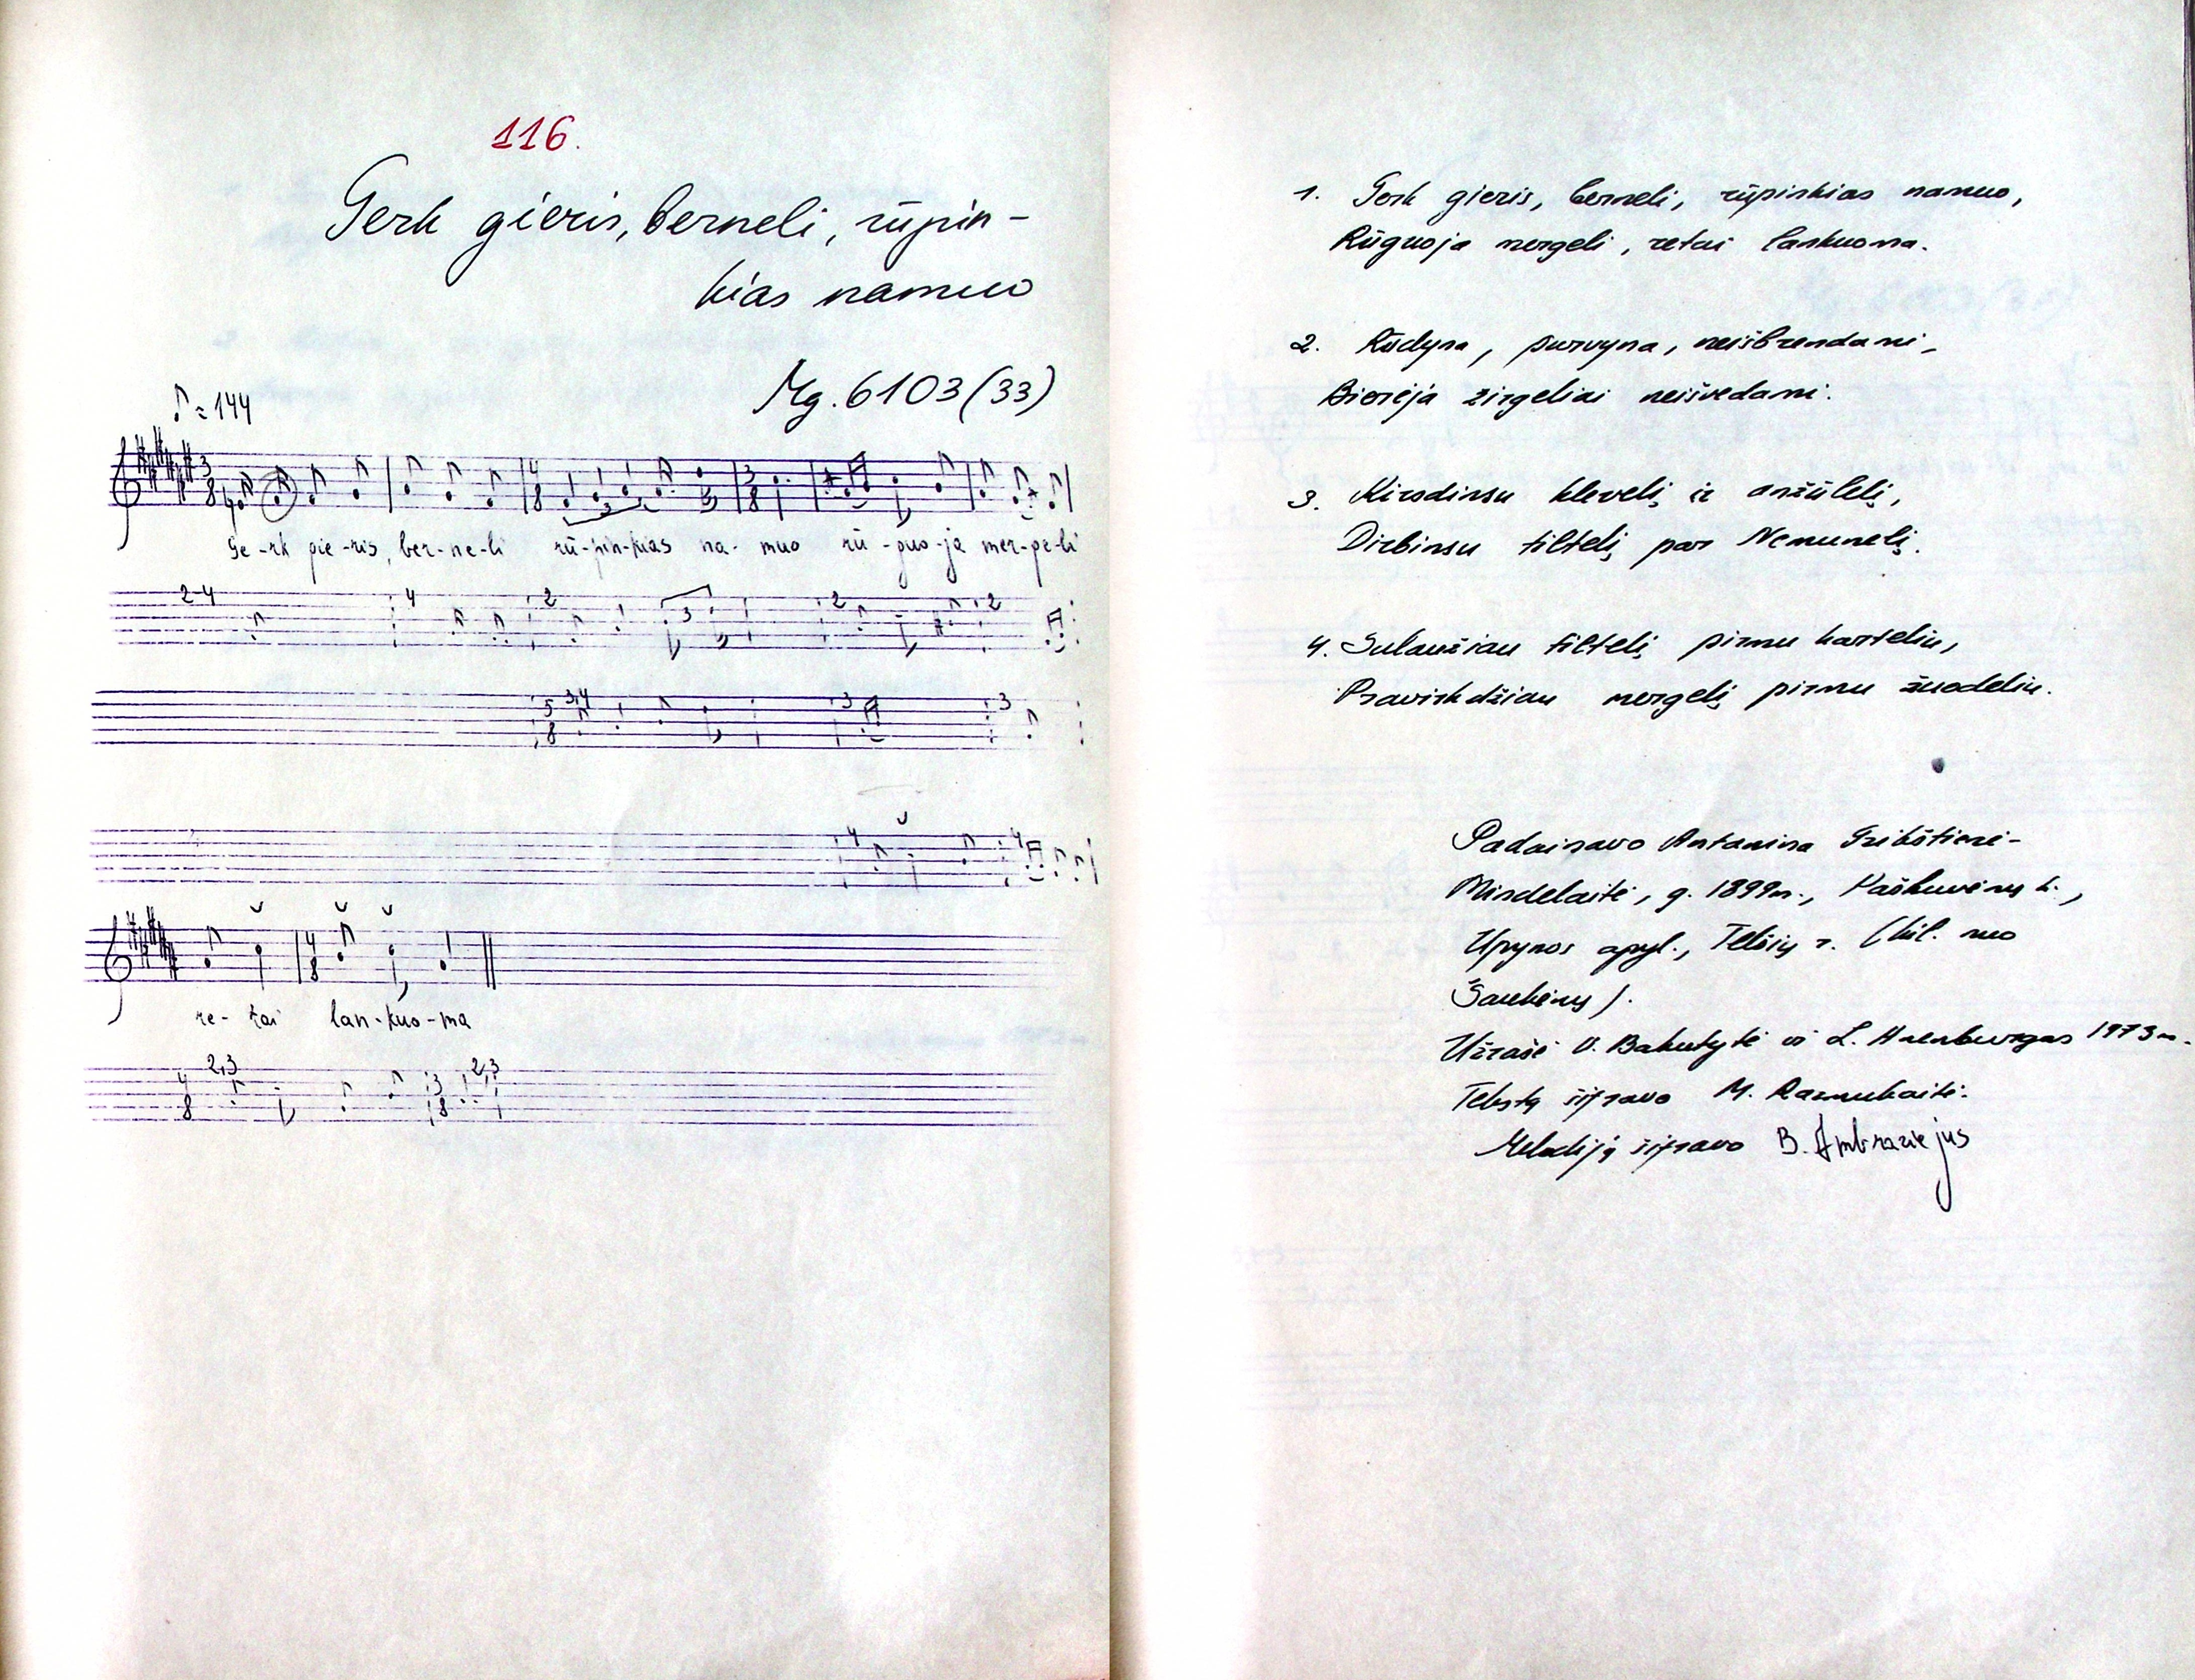 116.
Gerk gieris, berneli, rūpin-
kias namuo
Mg. 6103 (33)
♪ = 144
Ge-rk gie-ris, ber-ne-li rū-pin-kias na-muo rū-guo-ja mer-ge-li
re-tai lan-kuo-ma
1. Gerk gieris, berneli, rūpinkias namuo,
Rūguoja mergeli, retai lankuoma.
2. Rūdyna, purvyna, neišbrendami,
Bierėja žirgeliai neišvedami.
3. Kirsdinsu klevelį ir anžūlelį,
Dirbinsu tiltelį par Nemunelį.
4. Sulaužiau tiltelį pirmu karteliu,
Pravirkdžiau mergelį pirmu žuodeliu.
Padainavo Antanina Gribštienė-
Mindelaitė, g. 1899 m., Paškuvėnų k.,
Upynos apyl., Telšių r. (kil. nuo
Šaukėnų).
Užrašė V. Bakutytė ir L. 1973 m.
Tekstą šifravo M. Razmukaitė.
Melodiją šifravo B. Ambraziejus